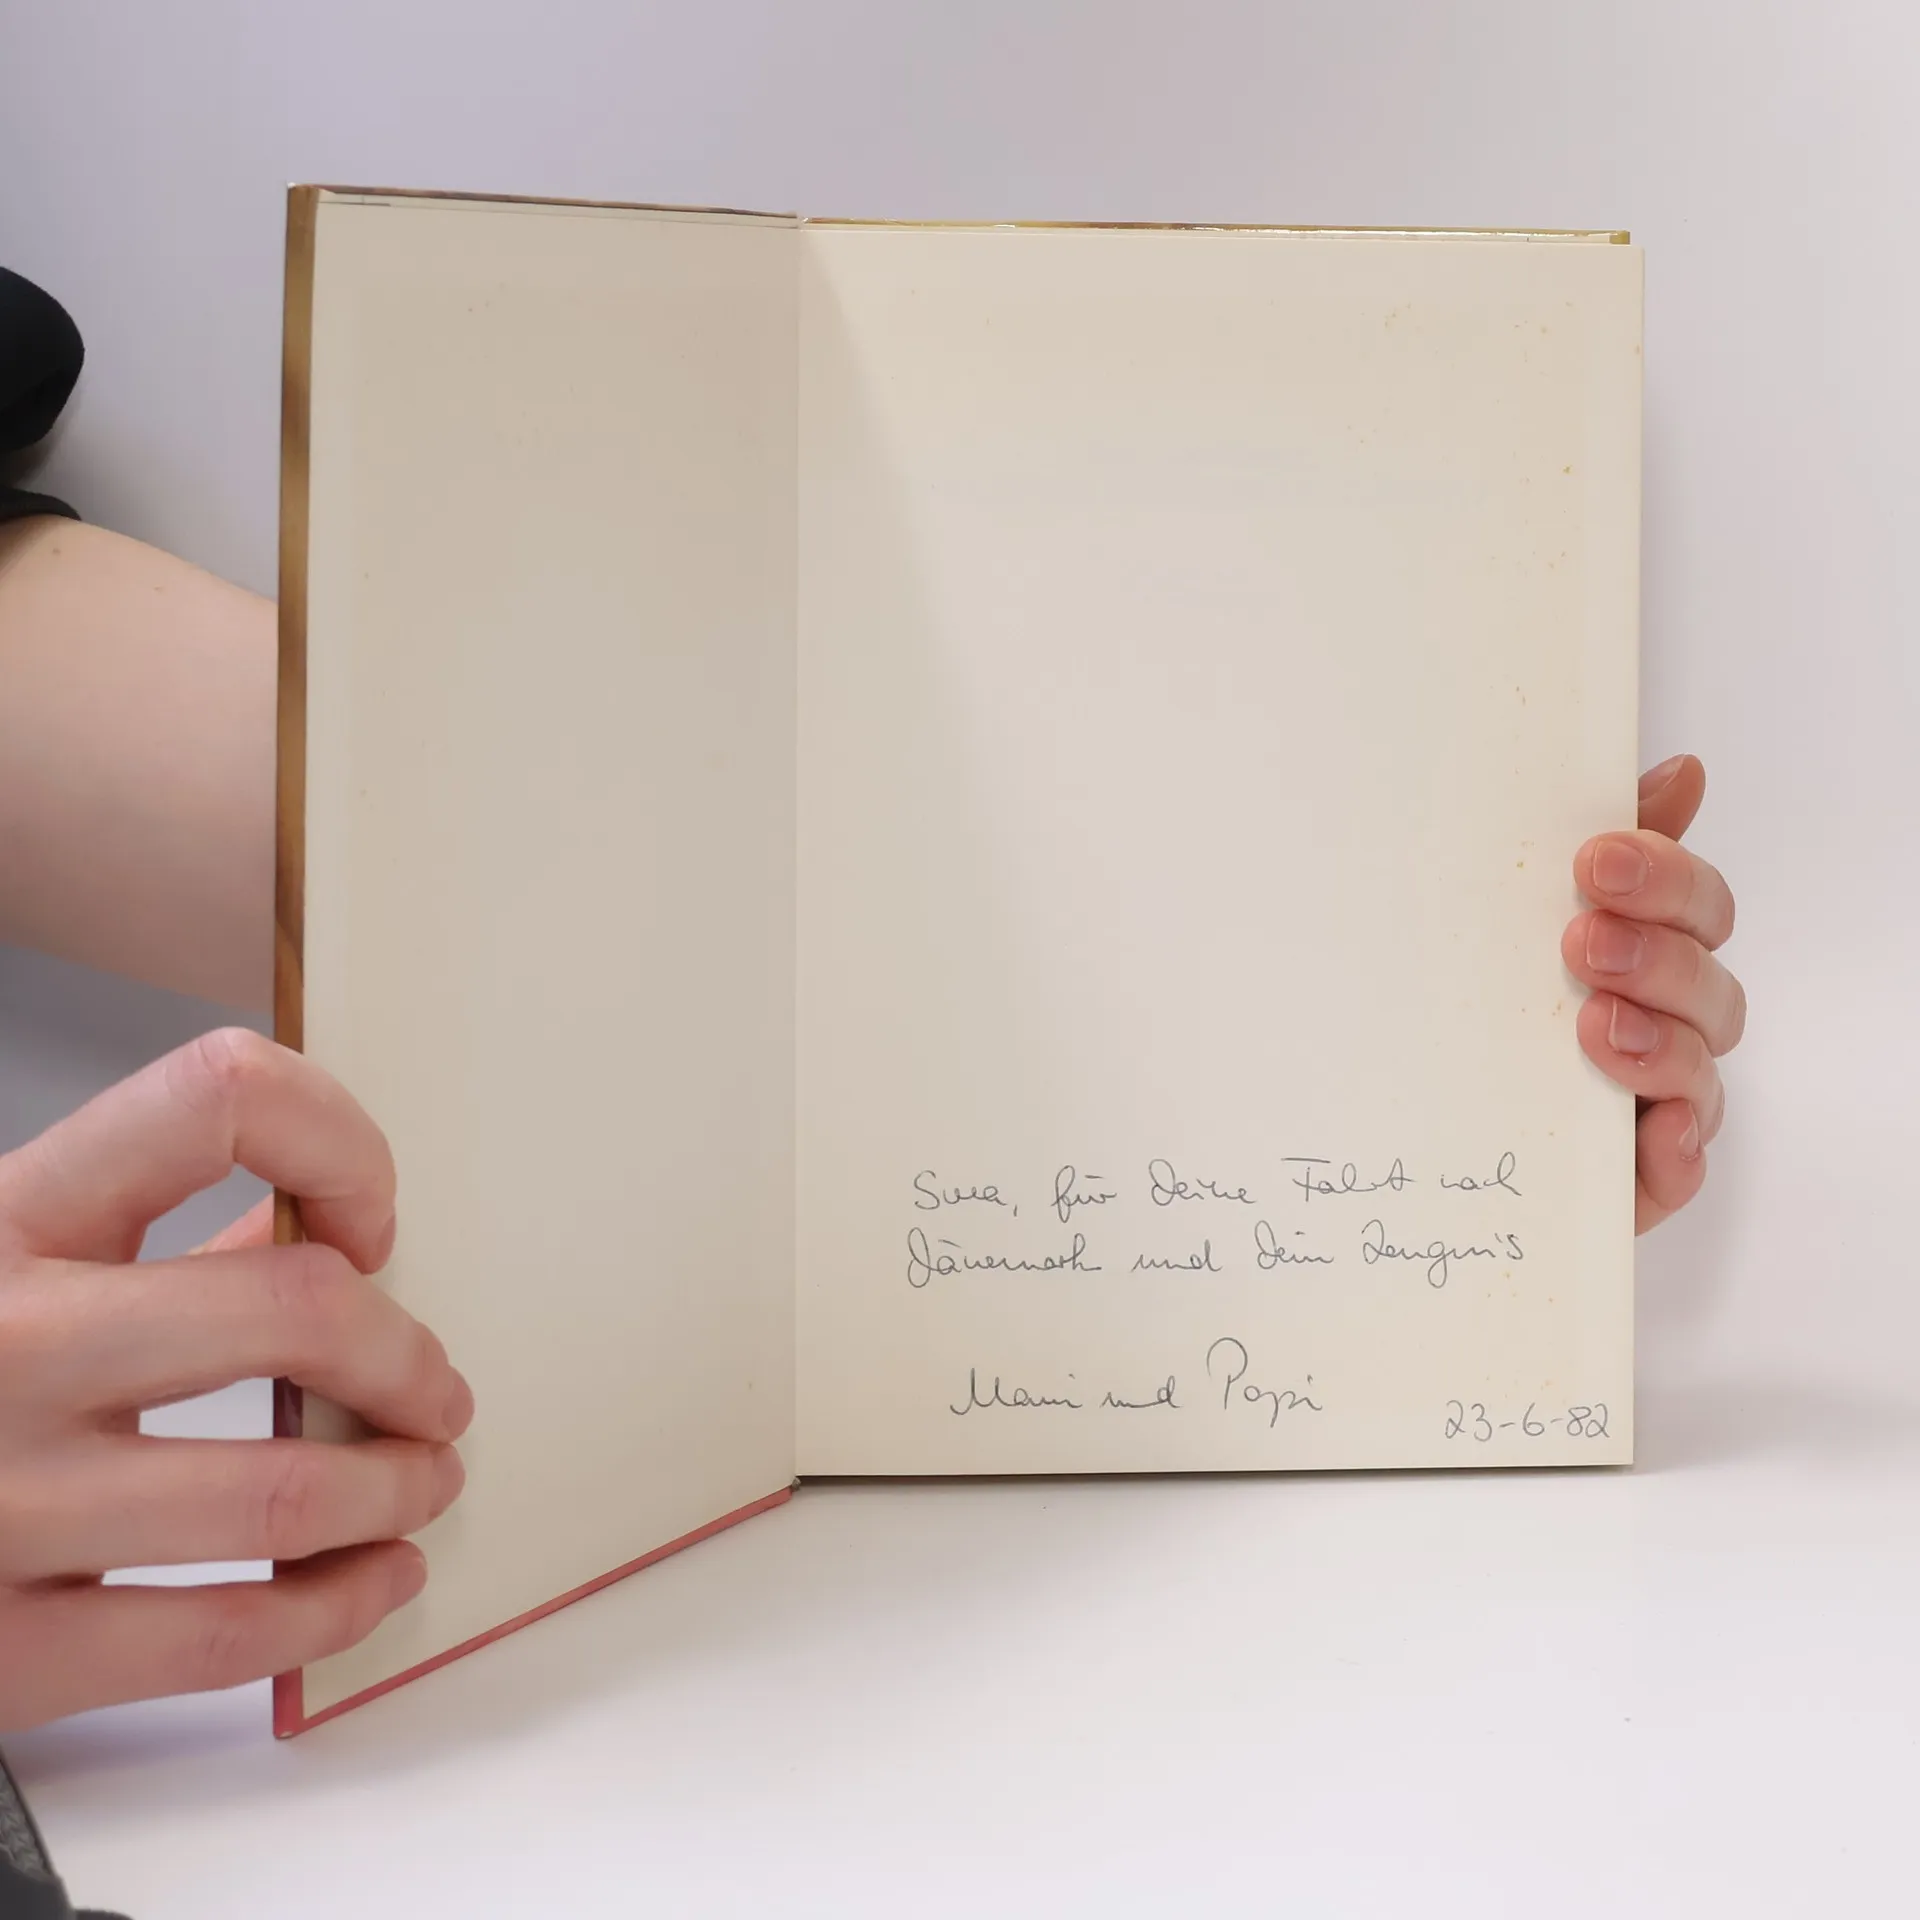 Svea, für Deine Fahrt nach
Dänemark und Dein Zeugnis
Mami und Papi
23-6-82